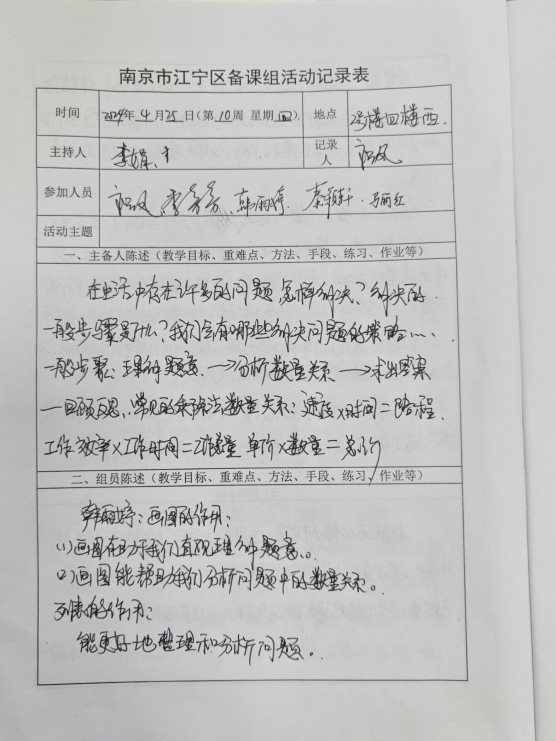 南京市江宁区备课组活动记录表
时间 2024年4月25日(第10周 星期四). 地点 2号楼四楼西
主持人 李娟 记录人
参加人员 韩雨婷、
活动主题
一、主备人陈述（教学目标、重难点、方法、手段、练习、作业等）
在生活中存在许多的问题,怎样解决?解决的
一般步骤是什么?我们会有哪些解决问题的策略……
一般步骤：理解题意 →分析数量关系 →求出答案
—回顾反思.常见的乘除法数量关系：速度×时间=路程.
工作效率×工作时间=工作总量 单价×数量=总价
二、组员陈述（教学目标、重难点、方法、手段、练习、作业等）
韩雨婷：画图的作用：
(1)画图有助于我们直观理解题意。
(2)画图能帮助我们分析问题中的数量关系。
列表的作用：
能更好地整理和分析问题。